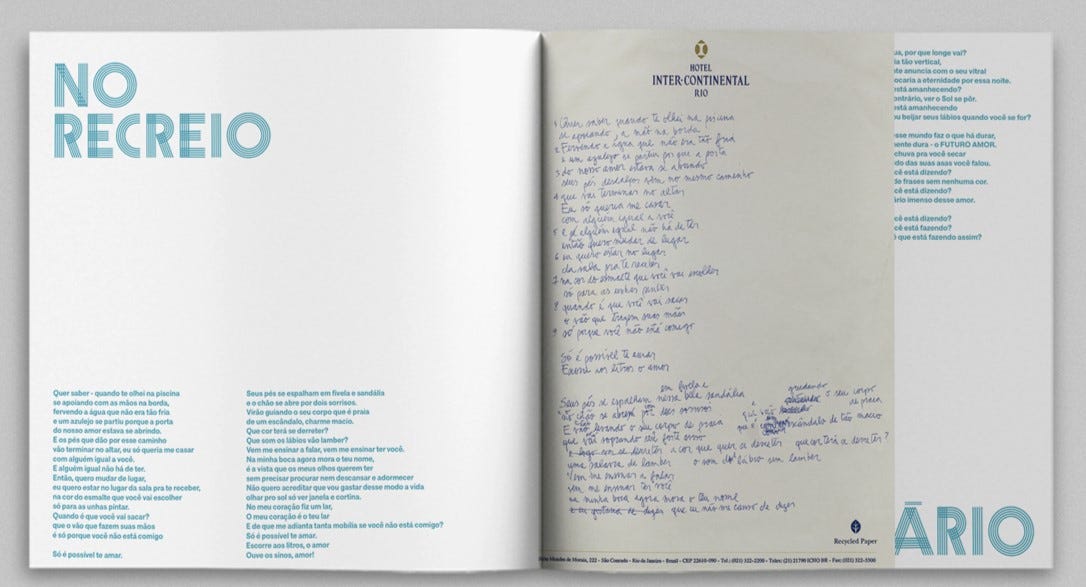 NO
RECREIO
Quer saber - quando te olhei na piscina
se apoiando com as mãos na borda,
fervendo a água que não era tão fria
e um azulejo se partiu porque a porta
do nosso amor estava se abrindo.
E os pés que dão por esse caminho
vão terminar no altar, eu só queria me casar
com alguém igual a você.
E alguém igual não há de ter.
Então, quero mudar de lugar,
eu quero estar no lugar da sala pra te receber,
na cor do esmalte que você vai escolher
só para as unhas pintar.
Quando é que você vai sacar?
que o vão que fazem suas mãos
é só porque você não está comigo
Só é possível te amar.
Seus pés se espalham em fivela e sandália
e o chão se abre por dois sorrisos.
Virão guiando o seu corpo que é praia
de um escândalo, charme macio.
Que cor terá se derreter?
Que som os lábios vão lamber?
Vem me ensinar a falar, vem me ensinar ter você.
Na minha boca agora mora o teu nome,
é a vista que os meus olhos querem ter
sem precisar procurar nem descansar e adormecer
Não quero acreditar que vou gastar desse modo a vida
olhar pro sol só ver janela e cortina.
No meu coração fiz um lar,
O meu coração é o teu lar
E de que me adianta tanta mobília se você não está comigo?
Só é possível te amar.
Escorre aos litros, o amor
Ouve os sinos, amor!
HOTEL
INTER·CONTINENTAL
RIO
1 Quer saber quando te olhei na piscina
se apoiando, a mão na borda
2 Fervendo a água que não era tão fria
e um azulejo se partiu por que a porta
3 do nosso amor estava se abrindo
seus pés descalços vêm no mesmo caminho
4 que vai terminar no altar
Eu só queria me casar
com alguém igual a você
5 e alguém igual não há de ter
então quero mudar de lugar
6 eu quero estar no lugar
da sala pra te receber
7 na cor do esmalte que você vai escolher
só para as unhas pintar
8 quando é que você vai sacar
o vão que fazem suas mãos
9 só porque você não está comigo
Só é possível te amar
Escorre aos litros o amor
em fivela e
guiando o seu corpo
Seus pés se espalham nessa bela sandália
é de praia
no chão se abre por dois sorrisos
E vão levando o seu corpo de praia
escândalo de tão macio
que vai soprando seu forte
derreter a cor que quer se derreter que cor terá a derreter?
uma palavra de lamber o som do lábio sem lamber
Vem me ensinar a falar
vem me ensinar ter você
na minha boca agora mora o teu nome
eu gostaria de dizer que eu não me canso de dizer
Recycled Paper
Mendes de Morais, 222 - São Conrado - Rio de Janeiro - Brasil - CEP 22610-090 - Tel.: (021) 322-2200 - Telex: (21) 21790 ICHO BR - Fax: (021) 322-5500
ua, por que longe vai?
ia tão vertical,
te anuncia com o seu vitral
ocaria a eternidade por essa noite.
está amanhecendo?
ontrário, ver o Sol se pôr.
está amanhecendo
ou beijar seus lábios quando você se for?
esse mundo faz o que há durar,
mente dura - o FUTURO AMOR.
chuva pra você secar
do das suas asas você falou.
cê está dizendo?
do frases sem nenhuma cor.
cê está dizendo?
ário imenso desse amor.
cê está dizendo?
cê está fazendo?
é que está fazendo assim?
ÁRIO